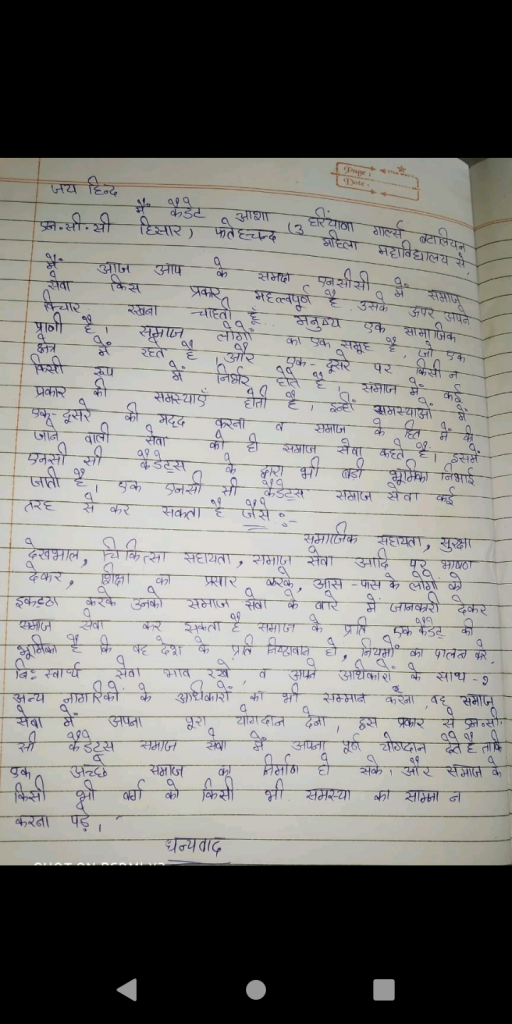 Page:
Date:
जय हिन्द
मैं कैडेट आशा (3 हरियाणा गर्ल्स बटालियन
एन.सी.सी हिसार) फतेहचन्द महिला महाविद्यालय से,
मैं आज आप के समक्ष एनसीसी में समाज
सेवा किस प्रकार महत्वपूर्ण है उसके ऊपर अपने
विचार रखना चाहती हूं मनुष्य एक सामाजिक
प्राणी है, समाज लोगों का एक समूह है, जो एक
क्षेत्र में रहते है, और एक-दूसरे पर किसी न
किसी रूप में निर्भर होते है, समाज में कई
प्रकार की समस्याएँ होती है, इन्हीं समस्याओं में
एक-दूसरे की मदद करना व समाज के हित में की
जाने वाली सेवा को ही समाज सेवा कहते है, इसमें
एनसी सी कैडेट्स के द्वारा भी बडी भूमिका निभाई
जाती है, एक एनसी सी कैडेट्स समाज सेवा कई
तरह से कर सकता है जैसे:-
सामाजिक सहायता, सुरक्षा
देखभाल, चिकित्सा सहायता, समाज सेवा आदि पर भाषण
देकर, शिक्षा का प्रसार करके, आस-पास के लोगों को
इकट्ठा करके उनको समाज सेवा के बारे में जानकारी देकर
समाज सेवा कर सकता है समाज के प्रति एक कैडेट की
भूमिका है कि वह देश के प्रति निष्ठावान हो, नियमों का पालन करे,
नि:स्वार्थ सेवा भाव रखे, व अपने अधिकारों के साथ-2
अन्य नागरिकों के अधिकारों का भी सम्मान करना, वह समाज
सेवा में अपना पूरा योगदान देना, इस प्रकार से एन.सी.
सी कैडेट्स समाज सेवा में अपना पूर्ण योगदान देते है ताकि
एक अच्छे समाज का निर्माण हो सके, और समाज के
किसी भी वर्ग को किसी भी समस्या का सामना न
करना पड़े,
धन्यवाद
SHOT ON REDMI